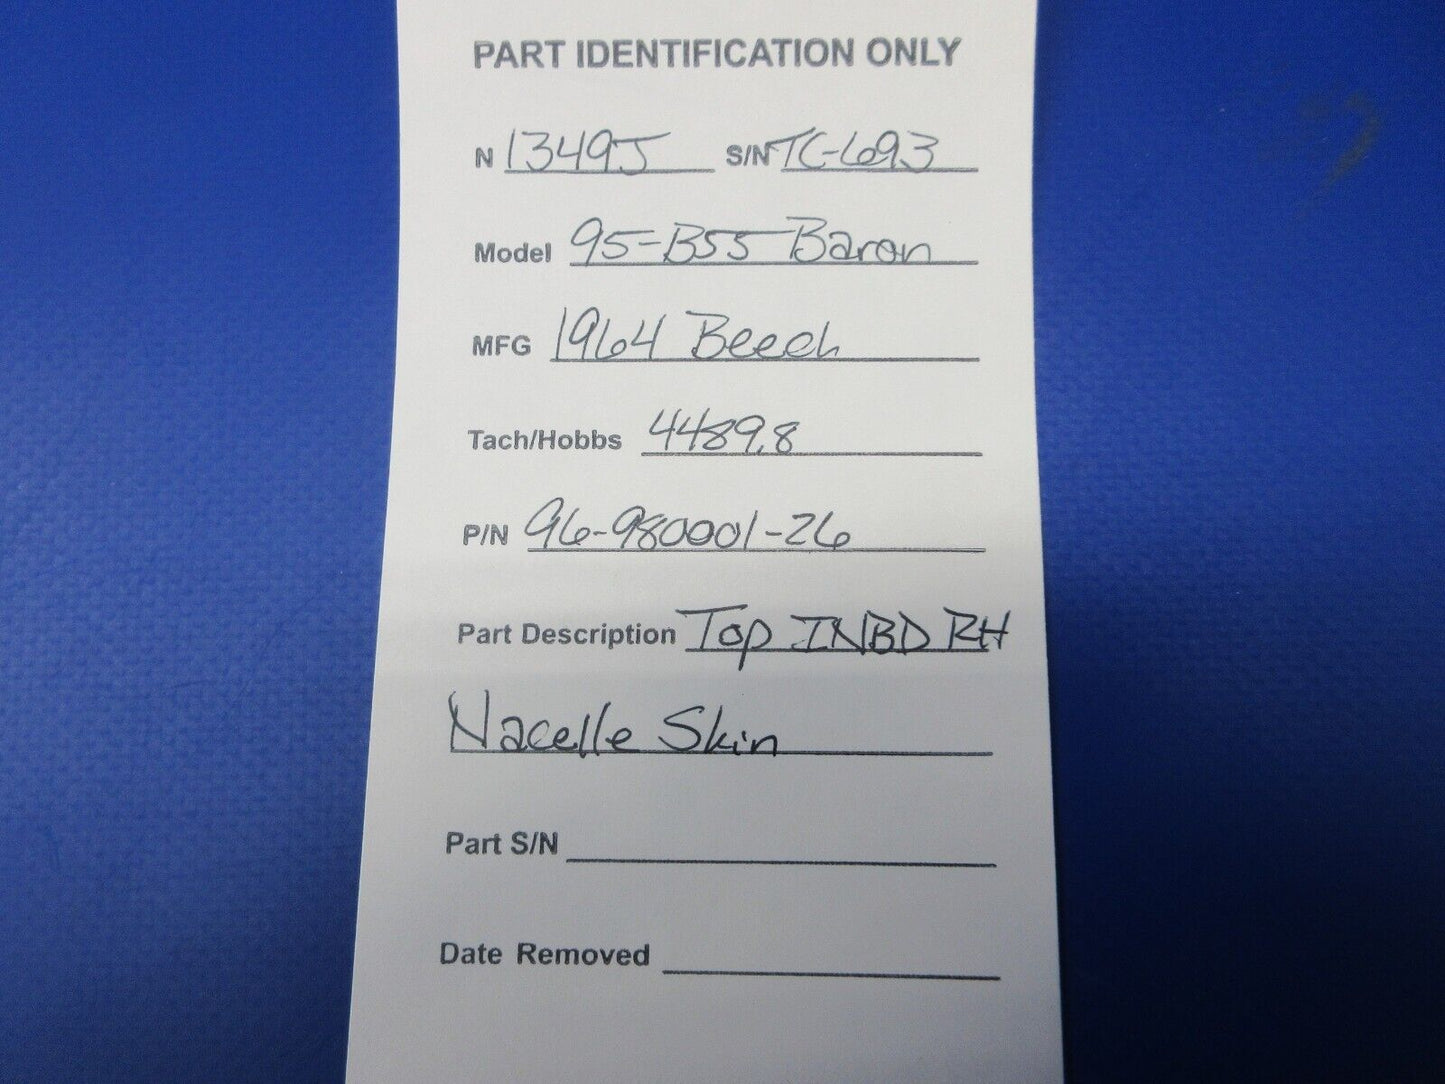 PART IDENTIFICATION ONLY
N 1349J S/N TC-693
Model 95-B55 Baron
MFG 1964 Beech
Tach/Hobbs 4489.8
P/N 96-980001-26
Part Description Top INBD RH
Nacelle Skin
Part S/N
Date Removed